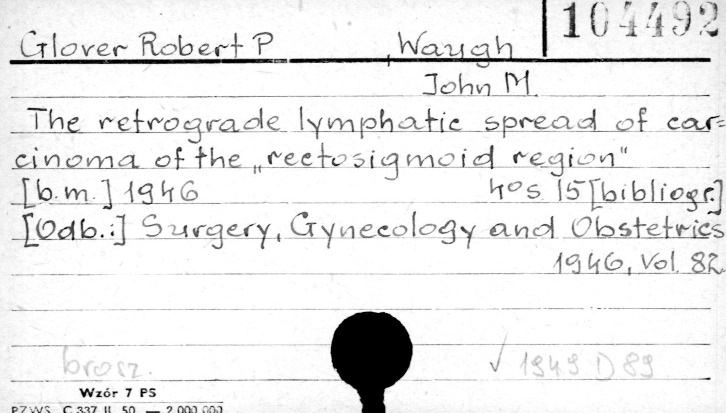 104492
Glover Robert P , Waugh
John M.
The retrograde lymphatic spread of car=
cinoma of the „rectosigmoid region"
[b.m.] 1946 4° s 15 [bibliogr.]
[Odb.:] Surgery, Gynecology and Obstetrics
1946, Vol. 82
brosz. √ 1949 D 89
Wzór 7 PS
PZWS. C 337 II. 50 — 2.000.000